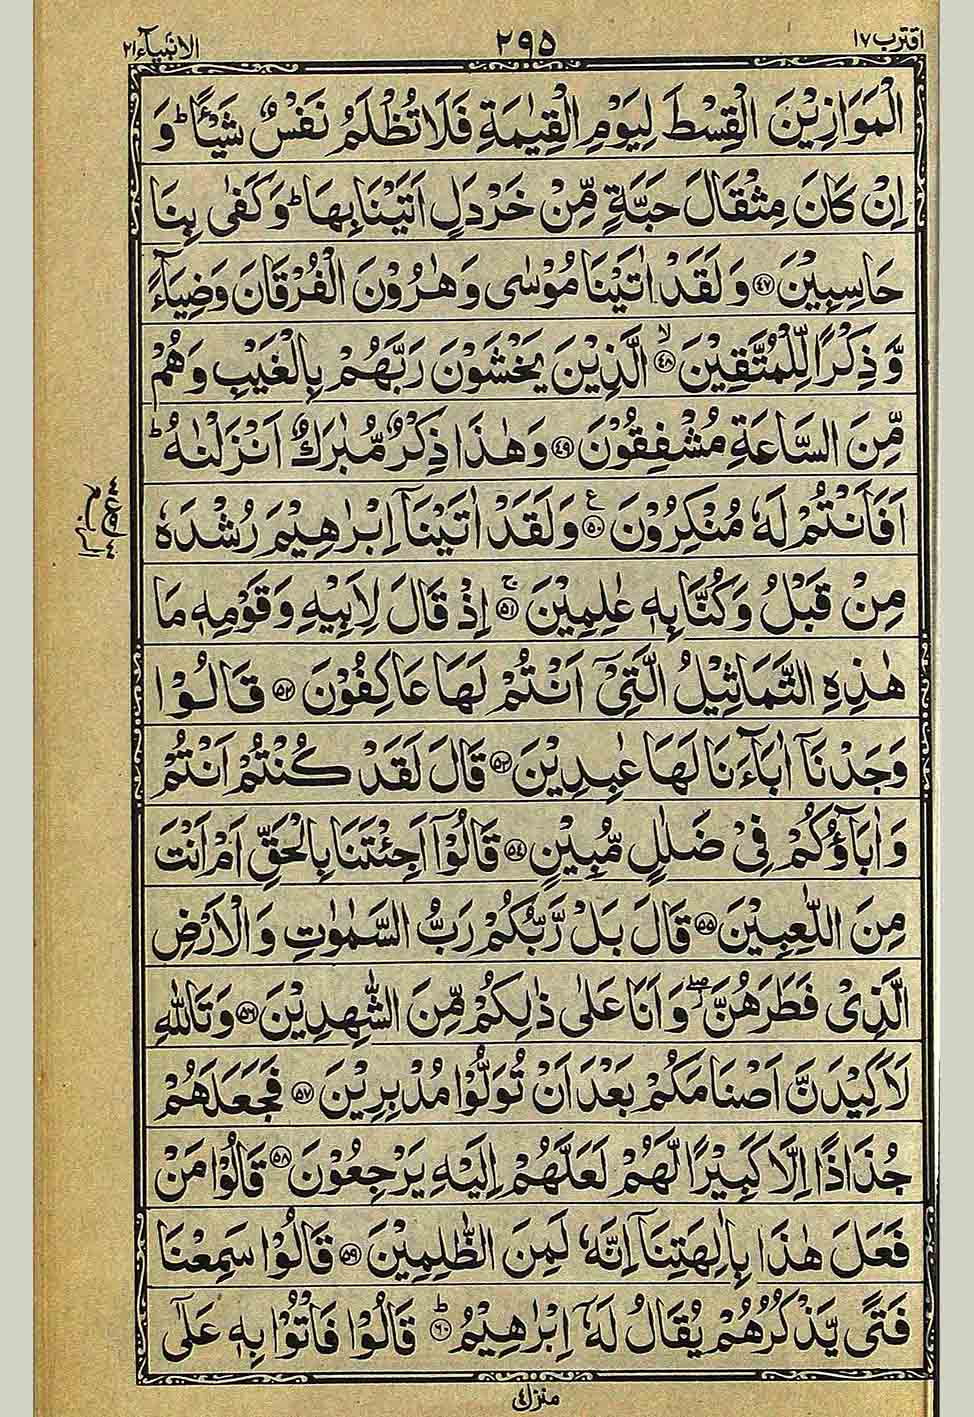 اقترب ١٧
٢٩٥
الانبيآء ٢١
الْمَوَازِيْنَ الْقِسْطَ لِيَوْمِ الْقِيٰمَةِ فَلَا تُظْلَمُ نَفْسٌ شَيْـًٔا ؕ وَ
اِنْ كَانَ مِثْقَالَ حَبَّةٍ مِّنْ خَرْدَلٍ اَتَيْنَا بِهَا ؕ وَكَفٰى بِنَا
حَاسِبِيْنَ ﴿٤٧﴾ وَلَقَدْ اٰتَيْنَا مُوْسٰى وَهٰرُوْنَ الْفُرْقَانَ وَضِيَآءً
وَّ ذِكْرًا لِّلْمُتَّقِيْنَ ﴿٤٨﴾ ۙ الَّذِيْنَ يَخْشَوْنَ رَبَّهُمْ بِالْغَيْبِ وَهُمْ
مِّنَ السَّاعَةِ مُشْفِقُوْنَ ﴿٤٩﴾ وَهٰذَا ذِكْرٌ مُّبٰرَكٌ اَنْزَلْنٰهُ ؕ
اَفَاَنْتُمْ لَهٗ مُنْكِرُوْنَ ﴿٥٠﴾ ع وَلَقَدْ اٰتَيْنَاۤ اِبْرٰهِيْمَ رُشْدَهٗ
مِنْ قَبْلُ وَكُنَّا بِهٖ عٰلِمِيْنَ ﴿٥١﴾ ۚ اِذْ قَالَ لِاَبِيْهِ وَقَوْمِهٖ مَا
هٰذِهِ التَّمَاثِيْلُ الَّتِيْۤ اَنْتُمْ لَهَا عَاكِفُوْنَ ﴿٥٢﴾ قَالُوْا
وَجَدْنَاۤ اٰبَآءَنَا لَهَا عٰبِدِيْنَ ﴿٥٣﴾ قَالَ لَقَدْ كُنْتُمْ اَنْتُمْ
وَاٰبَآؤُكُمْ فِيْ ضَلٰلٍ مُّبِيْنٍ ﴿٥٤﴾ قَالُوْۤا اَجِئْتَنَا بِالْحَقِّ اَمْ اَنْتَ
مِنَ اللّٰعِبِيْنَ ﴿٥٥﴾ قَالَ بَلْ رَّبُّكُمْ رَبُّ السَّمٰوٰتِ وَالْاَرْضِ
الَّذِيْ فَطَرَهُنَّ ۖ وَاَنَا عَلٰى ذٰلِكُمْ مِّنَ الشّٰهِدِيْنَ ﴿٥٦﴾ وَتَاللّٰهِ
لَاَكِيْدَنَّ اَصْنَامَكُمْ بَعْدَ اَنْ تُوَلُّوْا مُدْبِرِيْنَ ﴿٥٧﴾ فَجَعَلَهُمْ
جُذَاذًا اِلَّا كَبِيْرًا لَّهُمْ لَعَلَّهُمْ اِلَيْهِ يَرْجِعُوْنَ ﴿٥٨﴾ قَالُوْا مَنْ
فَعَلَ هٰذَا بِاٰلِهَتِنَاۤ اِنَّهٗ لَمِنَ الظّٰلِمِيْنَ ﴿٥٩﴾ قَالُوْا سَمِعْنَا
فَتًى يَّذْكُرُهُمْ يُقَالُ لَهٗۤ اِبْرٰهِيْمُ ﴿٦٠﴾ ؕ قَالُوْا فَاْتُوْا بِهٖ عَلٰۤى
منزل ٤